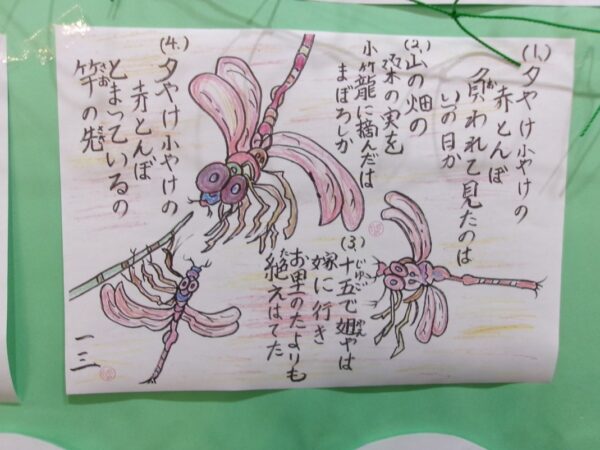 (1.) 夕やけ小やけの
赤とんぼ
負われて見たのは
いつの日か
(2.) 山の畑の
桑の実を
小籠に摘んだは
まぼろしか
(3.) 十五で姐やは
嫁に行き
お里のたよりも
絶えはてた
(4.) 夕やけ小やけの
赤とんぼ
とまっているの
竿の先
一三